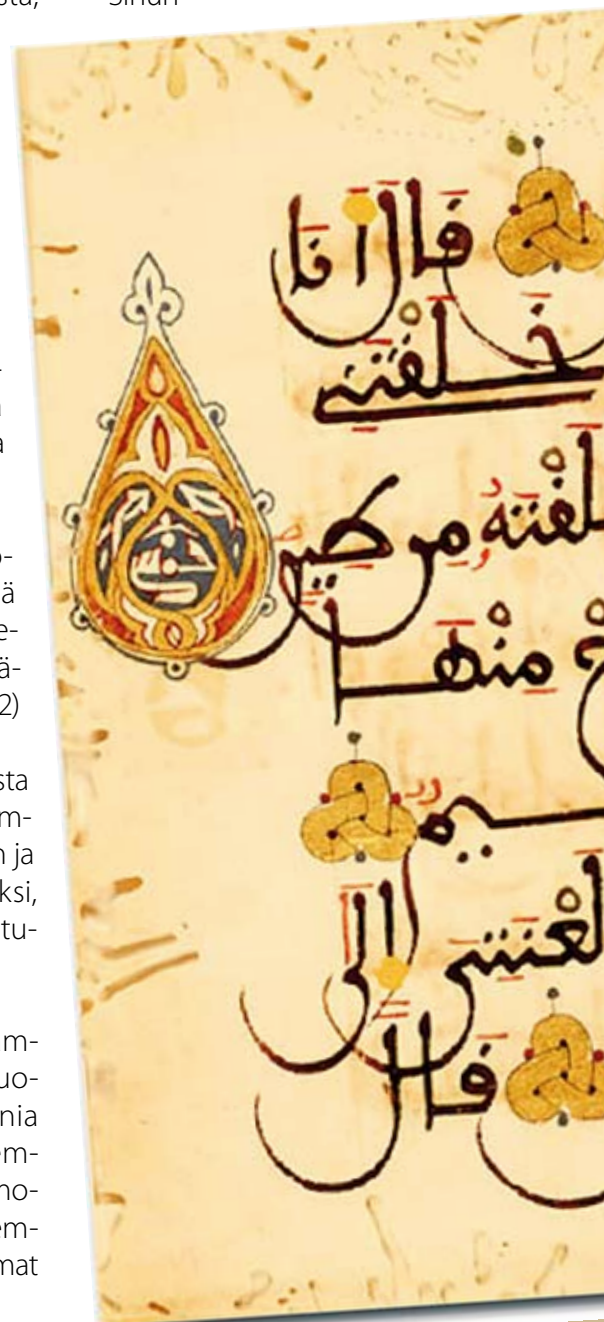 sta,
Sinun
o-
ä
e-
ä-
2)
sta
m-
n ja
ksi,
tu-
m-
uo-
nia
em-
no-
em-
mat
قال انا
خلقتني
لقته من طين
ج منها
يم
لعنتي الى
قال